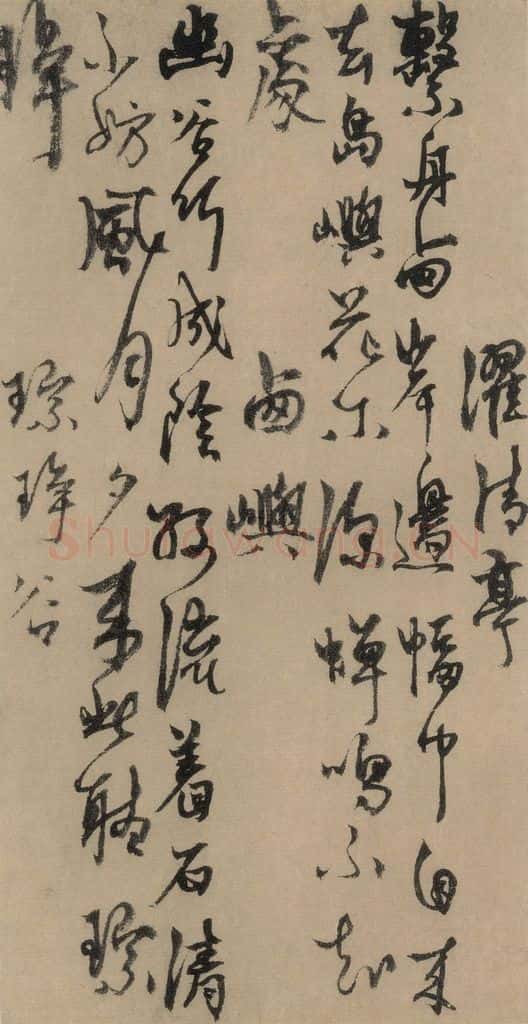 濯清亭
繫舟西岸邊幅巾自來
去島嶼花木深蟬鳴不知
處
西嶼
幽谷竹成陰流着石清
不妨風月夕來此聽琮
琤
琮琤谷
Shufawang.CN